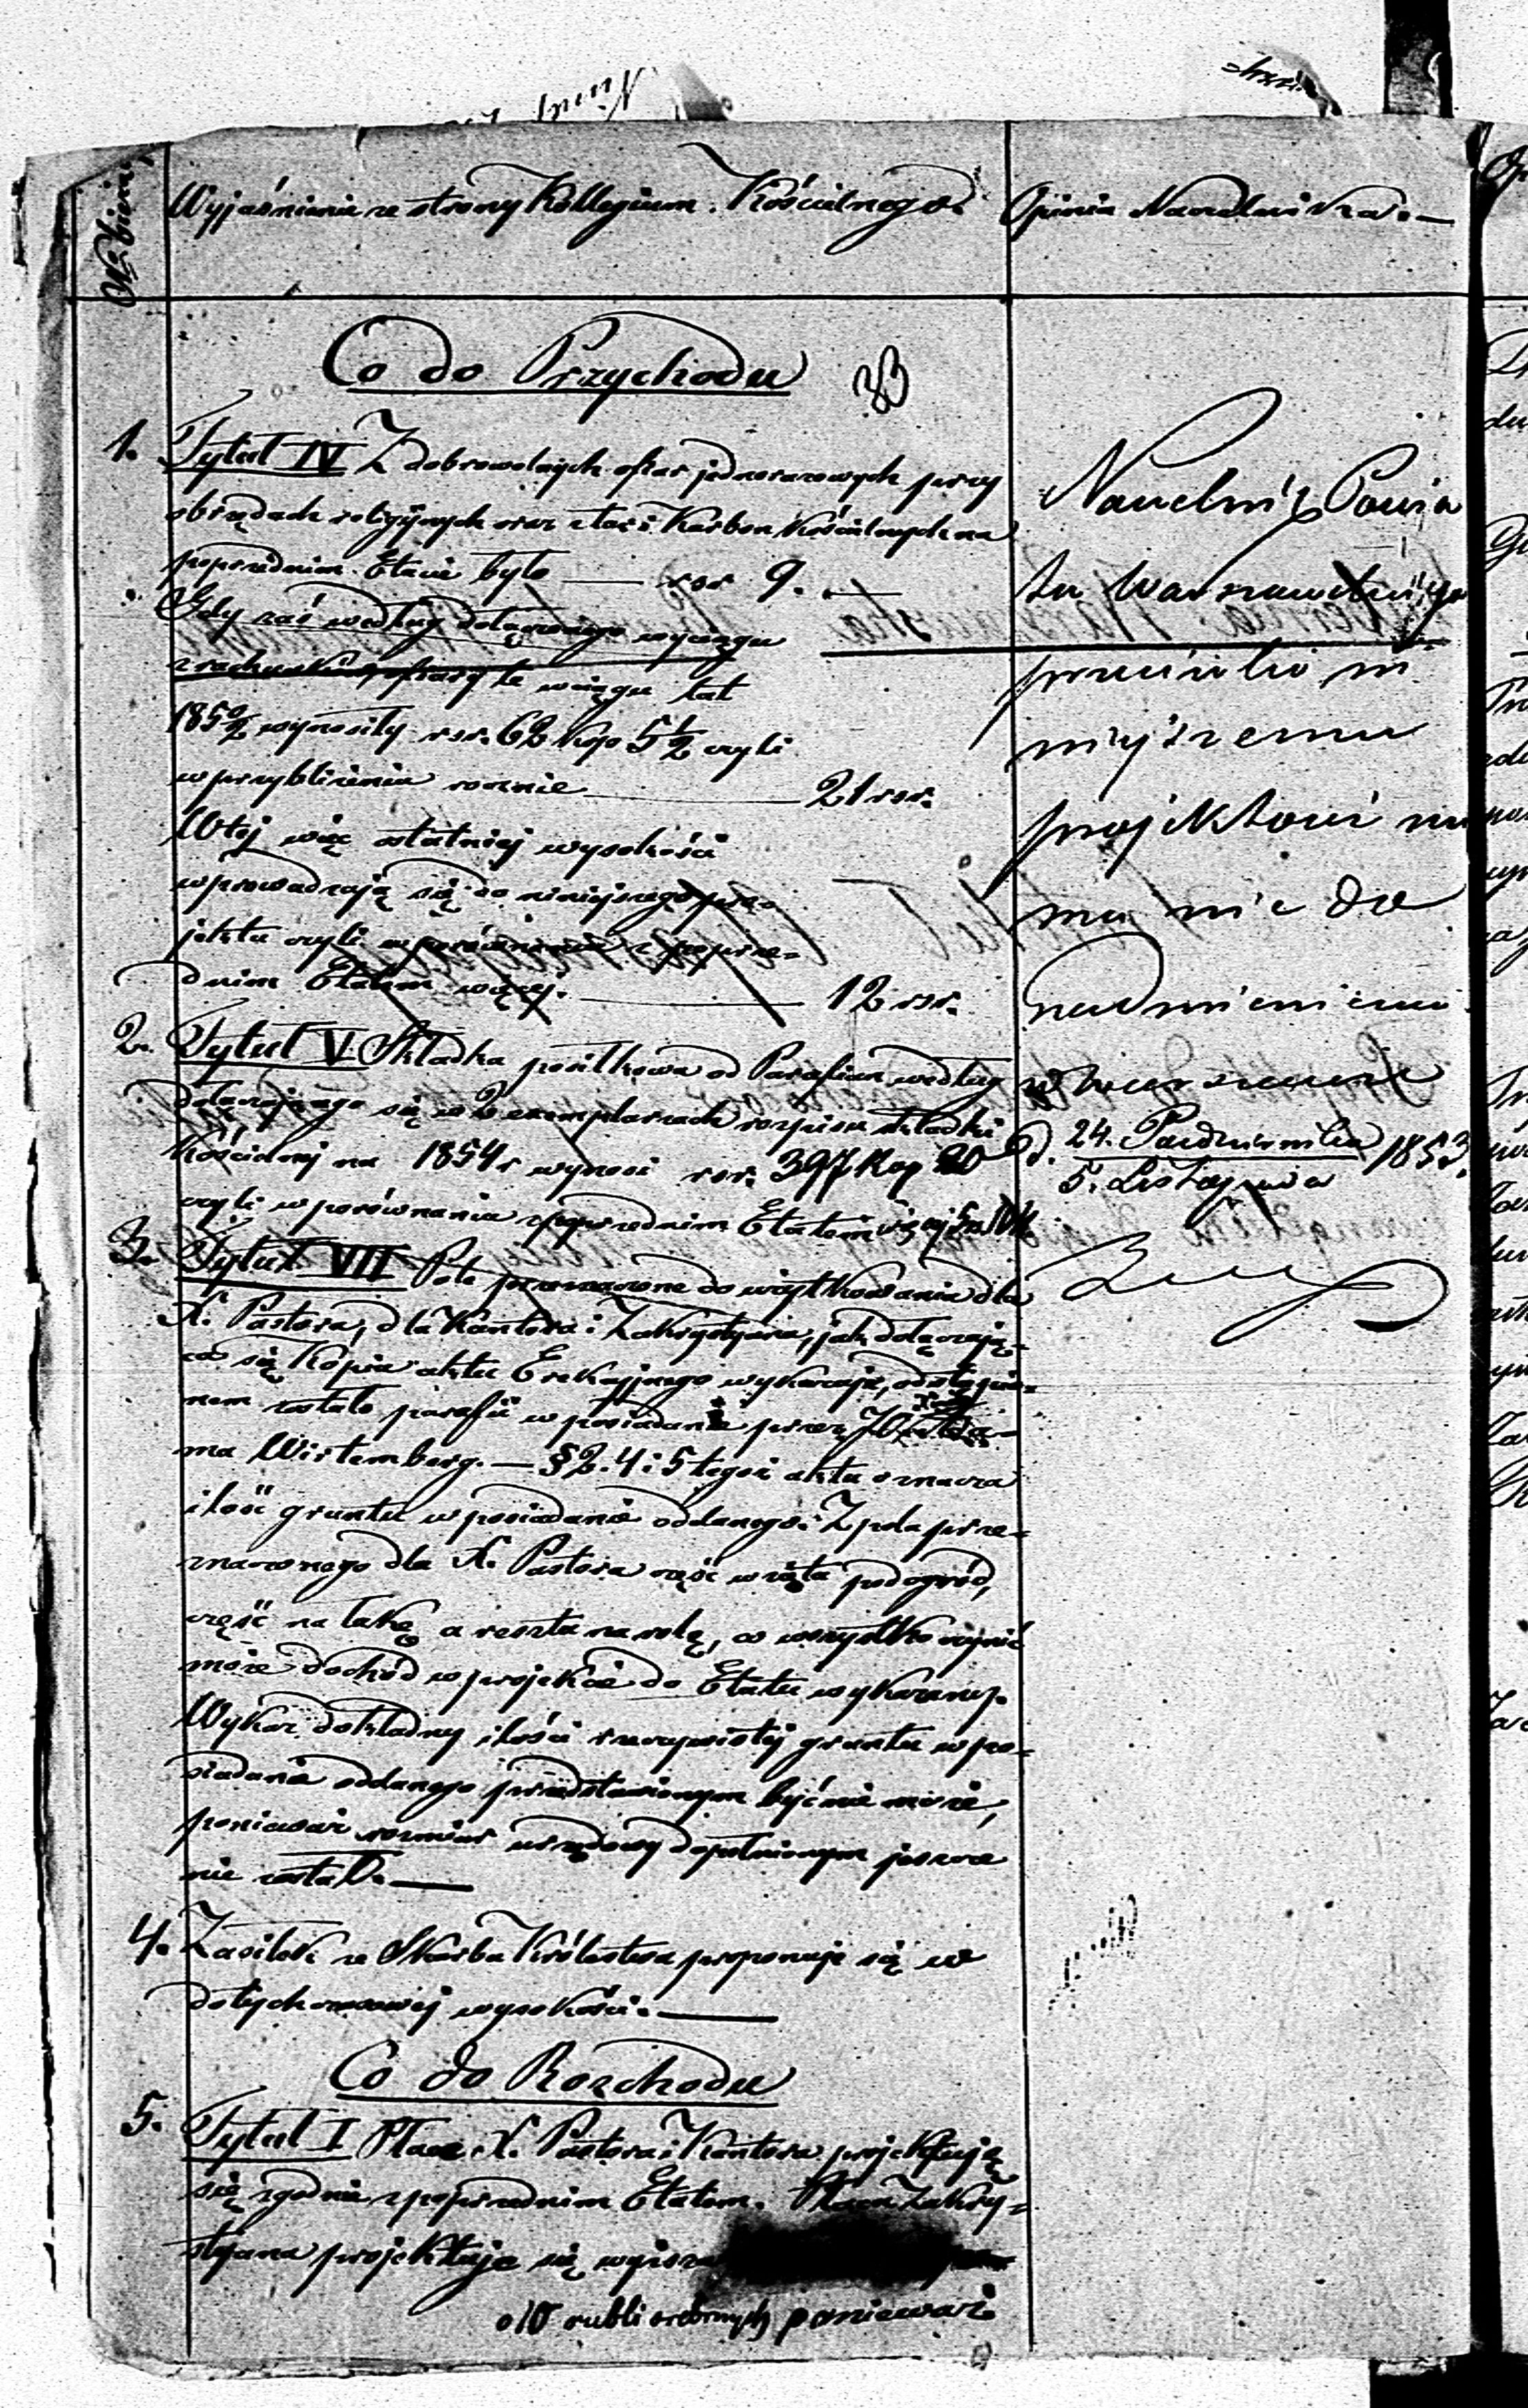 № bieżą.
Wyjaśnienia ze strony Kollegium Kościelnego.
Opinia Naczelnika.—
Co do Przychodu
33
1. Tytuł IV Z dobrowolnych ofiar jednorazowych przy
obrzędach religijnych oraz z tac i Karbon Kościelnych na
poprzednim Etacie było — rsr 9.—
Gdy zaś według dołączonego wyciągu
z rachunków, ofiary te w ciągu lat
wynosiły rsr. 62 kop 5½ czyli
w przybliżeniu rocznie — 21 rsr.
W tej więc ostatniej wysokości
wprowadzają się do niniejszego pro-
jektu czyli w porównaniu z poprze-
dnim Etatem więcej. — 12 rsr.
2. Tytuł V. Składka posiłkowa od Parafian według
dołączającego się w 2 exemplarzach rozpisu składki
Kościelnej na 1854 r wynosi rsr. 397 Kop 20
czyli w porównaniu z poprzednim Etatem
3. Tytuł VII Pola przeznaczone do użytkowania dla
X. Pastora, dla Kantora i Zakrystyana, jak dołączają-
ca się Kopia aktu Erekcyjnego wykazuje, odstąpio-
nem zostało parafii w posiadanie przez
ma Wirtemberg. — § 2. 4 i 5 tegoż aktu oznacza
ilość gruntu w posiadanie oddanego. Z pola prze-
znaczonego dla X. Pastora część wzięta pod ogród,
część na łąkę a reszta na rolę, co wszystko czynić
może dochód w projekcie do Etatu wykazany.
Wykaz dokładny ilości rzeczywistej gruntu w po-
siadanie oddanego przedstawionym być nie może,
ponieważ rozmiar urzędowy dopełnionym jeszcze
nie został. —
4. Zasiłek ze Skarbu Królestwa proponuje się w
dotychczasowej wysokości. —
Co do Rozchodu
5. Tytuł I Płace X. Pastora i Kantora projektują
się zgodnie z poprzednim Etatem. Płaca Zakry-
styana projektuje się wyższa
o 10 rubli srebrnych ponieważ
Naczelnik Powia
tu Warszawskiego
przeciwko ni
niejszemu
projektowi nic
ma nic do
nadmienienia
w Warszawie
d. 24. Października 1853.
5. Listopada